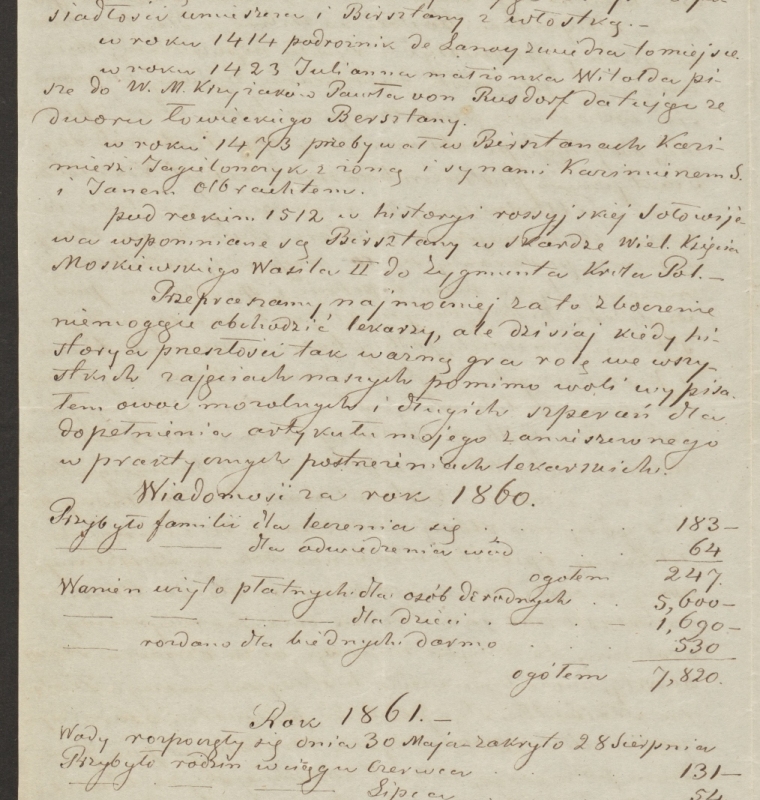 siadłości umieszcza i Birsztany z włostką.-
w roku 1414 podróżnik de Lanoy zwiedza to miejsce.
w roku 1423 Julianna małżonka Witolda pi-
sze do W. M. Krzyżaków Pawła von Rusdorf datując ze
dworu łowieckiego Bersztany.
w roku 1473 przebywał w Birsztanach Kazi-
mierz Jagielonczyk z żoną i synami Kazimierzem S.
i Janem Olbrachtem.
pod rokiem 1512 w historyi rossyjskiej Sołowije-
wa wspomniane są Birsztany w skardze Wiel. Księcia
Moskiewskiego Wasila II do Zygmunta Króla Pol.-
Przepraszamy najmocniej za to zboczenie
niemogące obchodzić lekarzy, ale dzisiaj kiedy hi-
storya przeszłości tak ważną gra rolę we wszy-
stkich zajęciach naszych pomimo woli wypisa-
łem owoc mozolnych i długich szperań dla
dopełnienia artykułu mojego zamieszczonego
w praktycznych postrzeżeniach lekarskich.
Wiadomość za rok 1860.
Przybyło familii dla leczenia się . . . 183-
— — dla odwiedzenia wód . . 64
ogółem 247.
Wanien wzięto płatnych dla osób dorosłych . . 5,600-
— — — dla dzieci . — . — 1,690-
— rozdano dla biednych darmo . . . 530
ogółem 7,820.
Rok 1861.-
Wody rozpoczęły się dnia 30 Maja-zakryto 28 Sierpnia
Przybyło rodzin w ciągu Czerwca . . . 131-
— — — Lipca . . 54